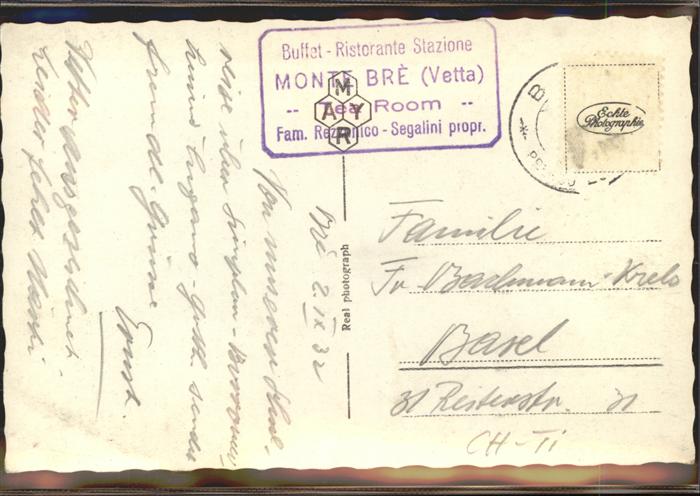 Buffet - Ristorante Stazione
MONTE BRÈ (Vetta)
-- Tea Room --
Fam. Rezzonico - Segalini propr.
M
A Y
R
Echte
Photographie
Real photograph
Brè 2.IX.32
Von unserer
reise über Simplan-
Lugano - Gotth. senden
freundl. Grüsse
Ernst.
Wetter ausgezeichnet
Familie
Fr. Bachmann-Krebs
Basel
31 Reiterstr. 31
CH-TI